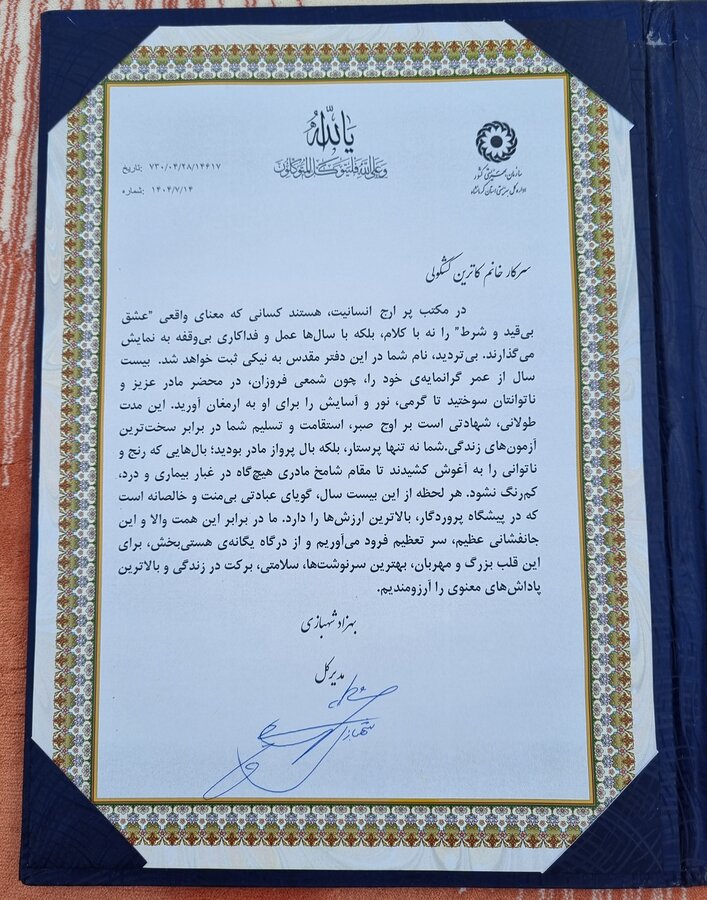 یا الله
وعلی الله فلیتوکل المتوکلون
سازمان بهزیستی کشور
اداره کل بهزیستی استان کرمانشاه
تاریخ: ۷۳۰/۰۴/۲۸/۱۴۶۱۷
شماره: ۱۴۰۴/۷/۱۴
سرکار خانم کاترین کشکولی
در مکتب پر ارج انسانیت، هستند کسانی که معنای واقعی "عشق
بی‌قید و شرط" را نه با کلام، بلکه با سال‌ها عمل و فداکاری بی‌وقفه به نمایش
می‌گذارند. بی‌تردید، نام شما در این دفتر مقدس به نیکی ثبت خواهد شد. بیست
سال از عمر گرانمایه‌ی خود را، چون شمعی فروزان، در محضر مادر عزیز و
ناتوانتان سوختید تا گرمی، نور و آسایش را برای او به ارمغان آورید. این مدت
طولانی، شهادتی است بر اوج صبر، استقامت و تسلیم شما در برابر سخت‌ترین
آزمون‌های زندگی.شما نه تنها پرستار، بلکه بال پرواز مادر بودید؛ بال‌هایی که رنج و
ناتوانی را به آغوش کشیدند تا مقام شامخ مادری هیچ‌گاه در غبار بیماری و درد،
کم‌رنگ نشود. هر لحظه از این بیست سال، گویای عبادتی بی‌منت و خالصانه است
که در پیشگاه پروردگار، بالاترین ارزش‌ها را دارد. ما در برابر این همت والا و این
جانفشانی عظیم، سر تعظیم فرود می‌آوریم و از درگاه یگانه‌ی هستی‌بخش، برای
این قلب بزرگ و مهربان، بهترین سرنوشت‌ها، سلامتی، برکت در زندگی و بالاترین
پاداش‌های معنوی را آرزومندیم.
بهزاد شهبازی
مدیرکل